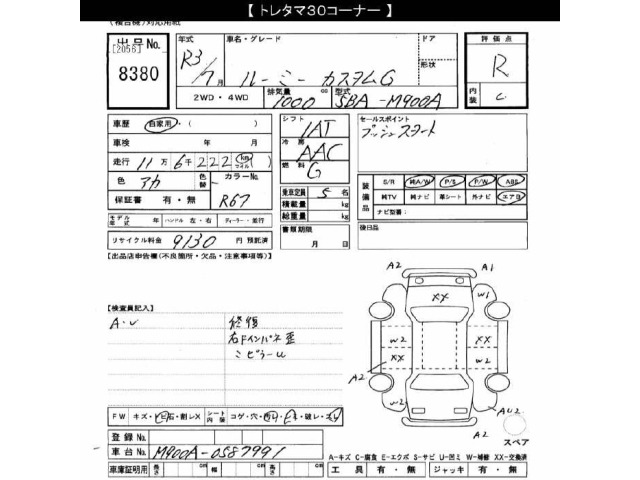 【 トレタマ30コーナー 】
(複合機)対応用紙
出品No.
[2056]
8380
年式
R3/7月
車名・グレード
ルーミー カスタムG
ドア
形状
2WD・4WD
排気量
1000 cc
型式
5BA-M900A
評価点
R
内装
C
車歴 自家用・( )
車検 年 月
走行 11万 6千222 km マイル
色 アカ
色替
カラーNo.
R67
保証書 有・無
モデル年式 年 ハンドル 左・右 ディーラー・並行
リサイクル料金 9130 円 預託済
シフト
IAT
冷房
AAC
燃料
G
乗車定員 5 名
積載量 kg
総重量 kg
書類期限
月 日
セールスポイント
プッシュスタート
装備品
S/R 純A/W P/S P/W ABS
純TV 純ナビ 革シート 外ナビ エアB
ナビ型番:
後日品
【出品店申告欄(不良箇所・欠品・注意事項等)】
【検査員記入】
A・U
修復
右Fインパネ歪
ミピラーU
A2
A1
XX
W1
W2
XX
XX
W2
W2
A2
A2
AU2
A2
スペア
FW キズ・ヒビ石・割レX シート内装 コゲ・穴・切レ・ヨゴレ・破レ・スレ
登録No.
車台No. M900A-0587991
車庫証明用 長さ cm 幅 cm 高さ cm
A-キズ C-腐食 E-エクボ S-サビ U-凹ミ W-補修 XX-交換済
工具 有・無 ジャッキ 有・無